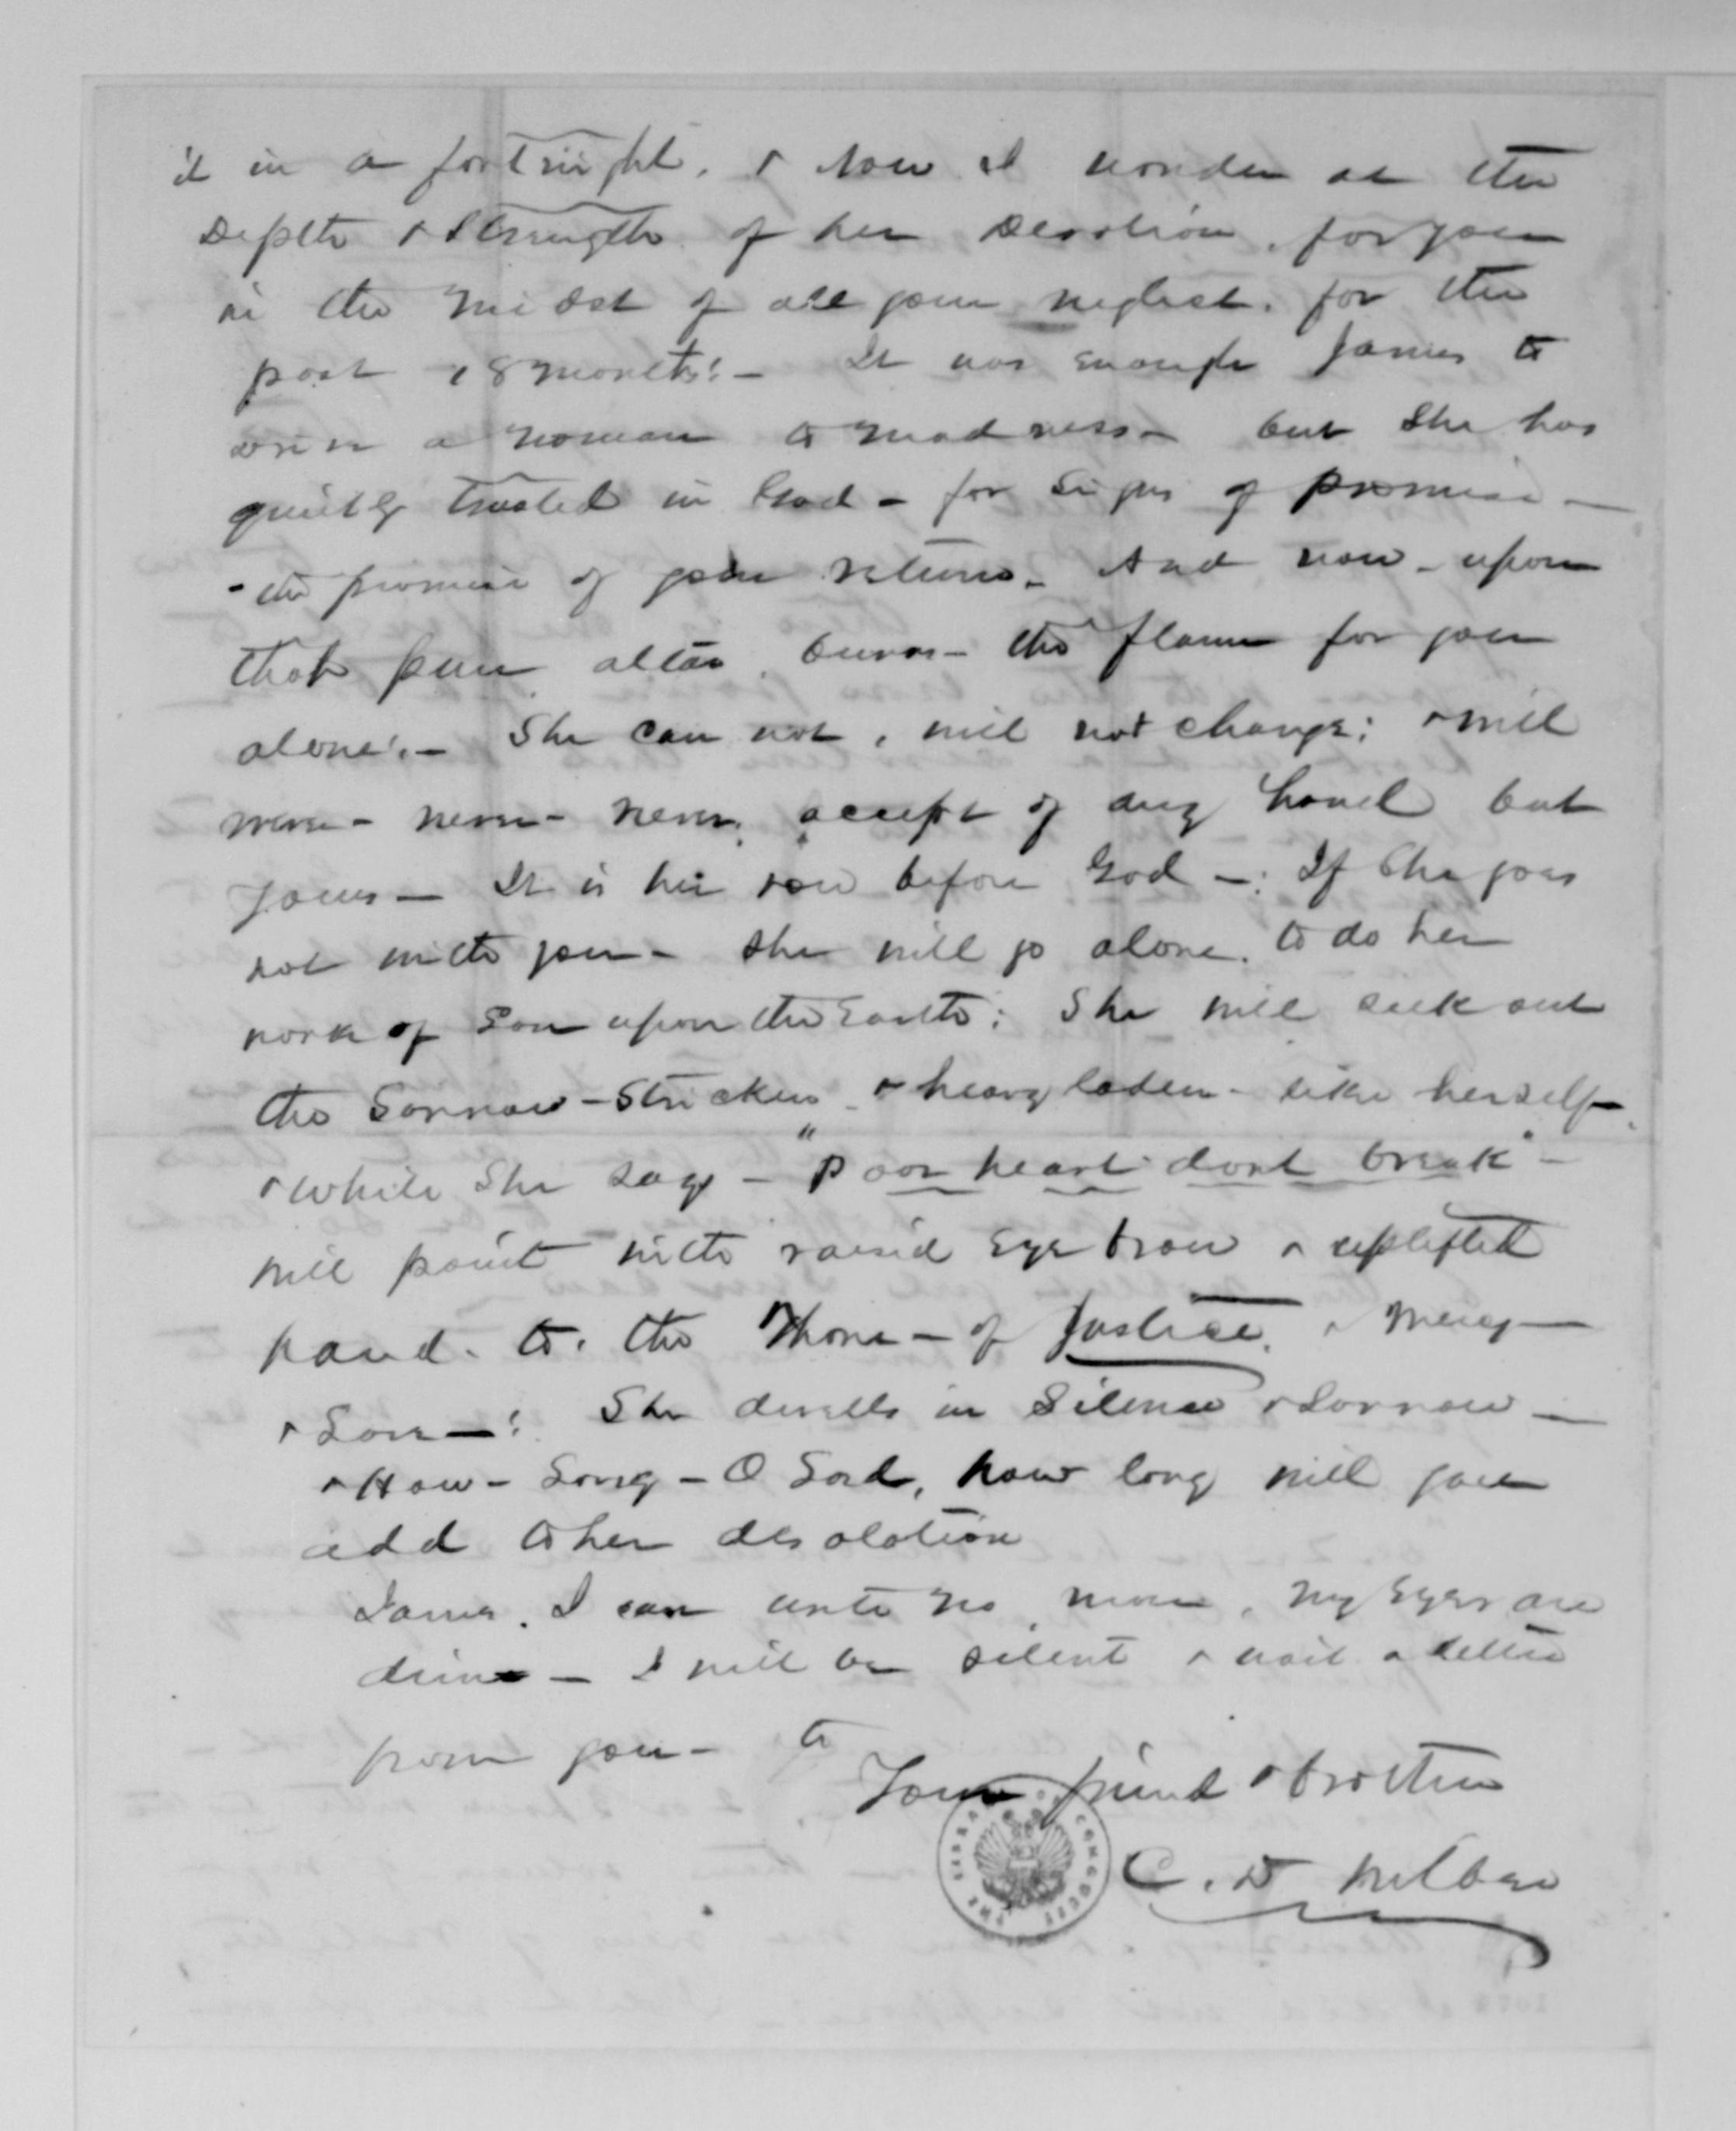 it in a fortnight. & Now I wonder at the
Depth & Strength of her Devotion, for you
in the midst of all your neglect. for the
past 18 months! - It was enough James to
drive a woman to madness - but She has
quietly trusted in God - for Signs of promise -
- the promise of your return - And now - upon
that pure altar burns - the flame for you
alone! - She can not, will not change; & will
never - never - never, accept of any hand but
Yours - It is her vow before God - : If She goes
not with you - She will go alone. to do her
work of Love upon the Earth: She will seek out
the Sorrow - Stricken & heavy laden - like herself
& while She says - "poor heart dont break" -
will point with raised Eye brow & uplifted
hand - to. the Throne - of Justice. & Mercy -
& Love - ! She dwells in Silence & Sorrow -
& How - Long - O Lord, how long will you
add to her desolation
James. I can write no more, My Eyes are
dim - I will be silent & wait a letter
from you - to
Your friend & brother
C. D Wilber
THE LIBRARY OF CONGRESS